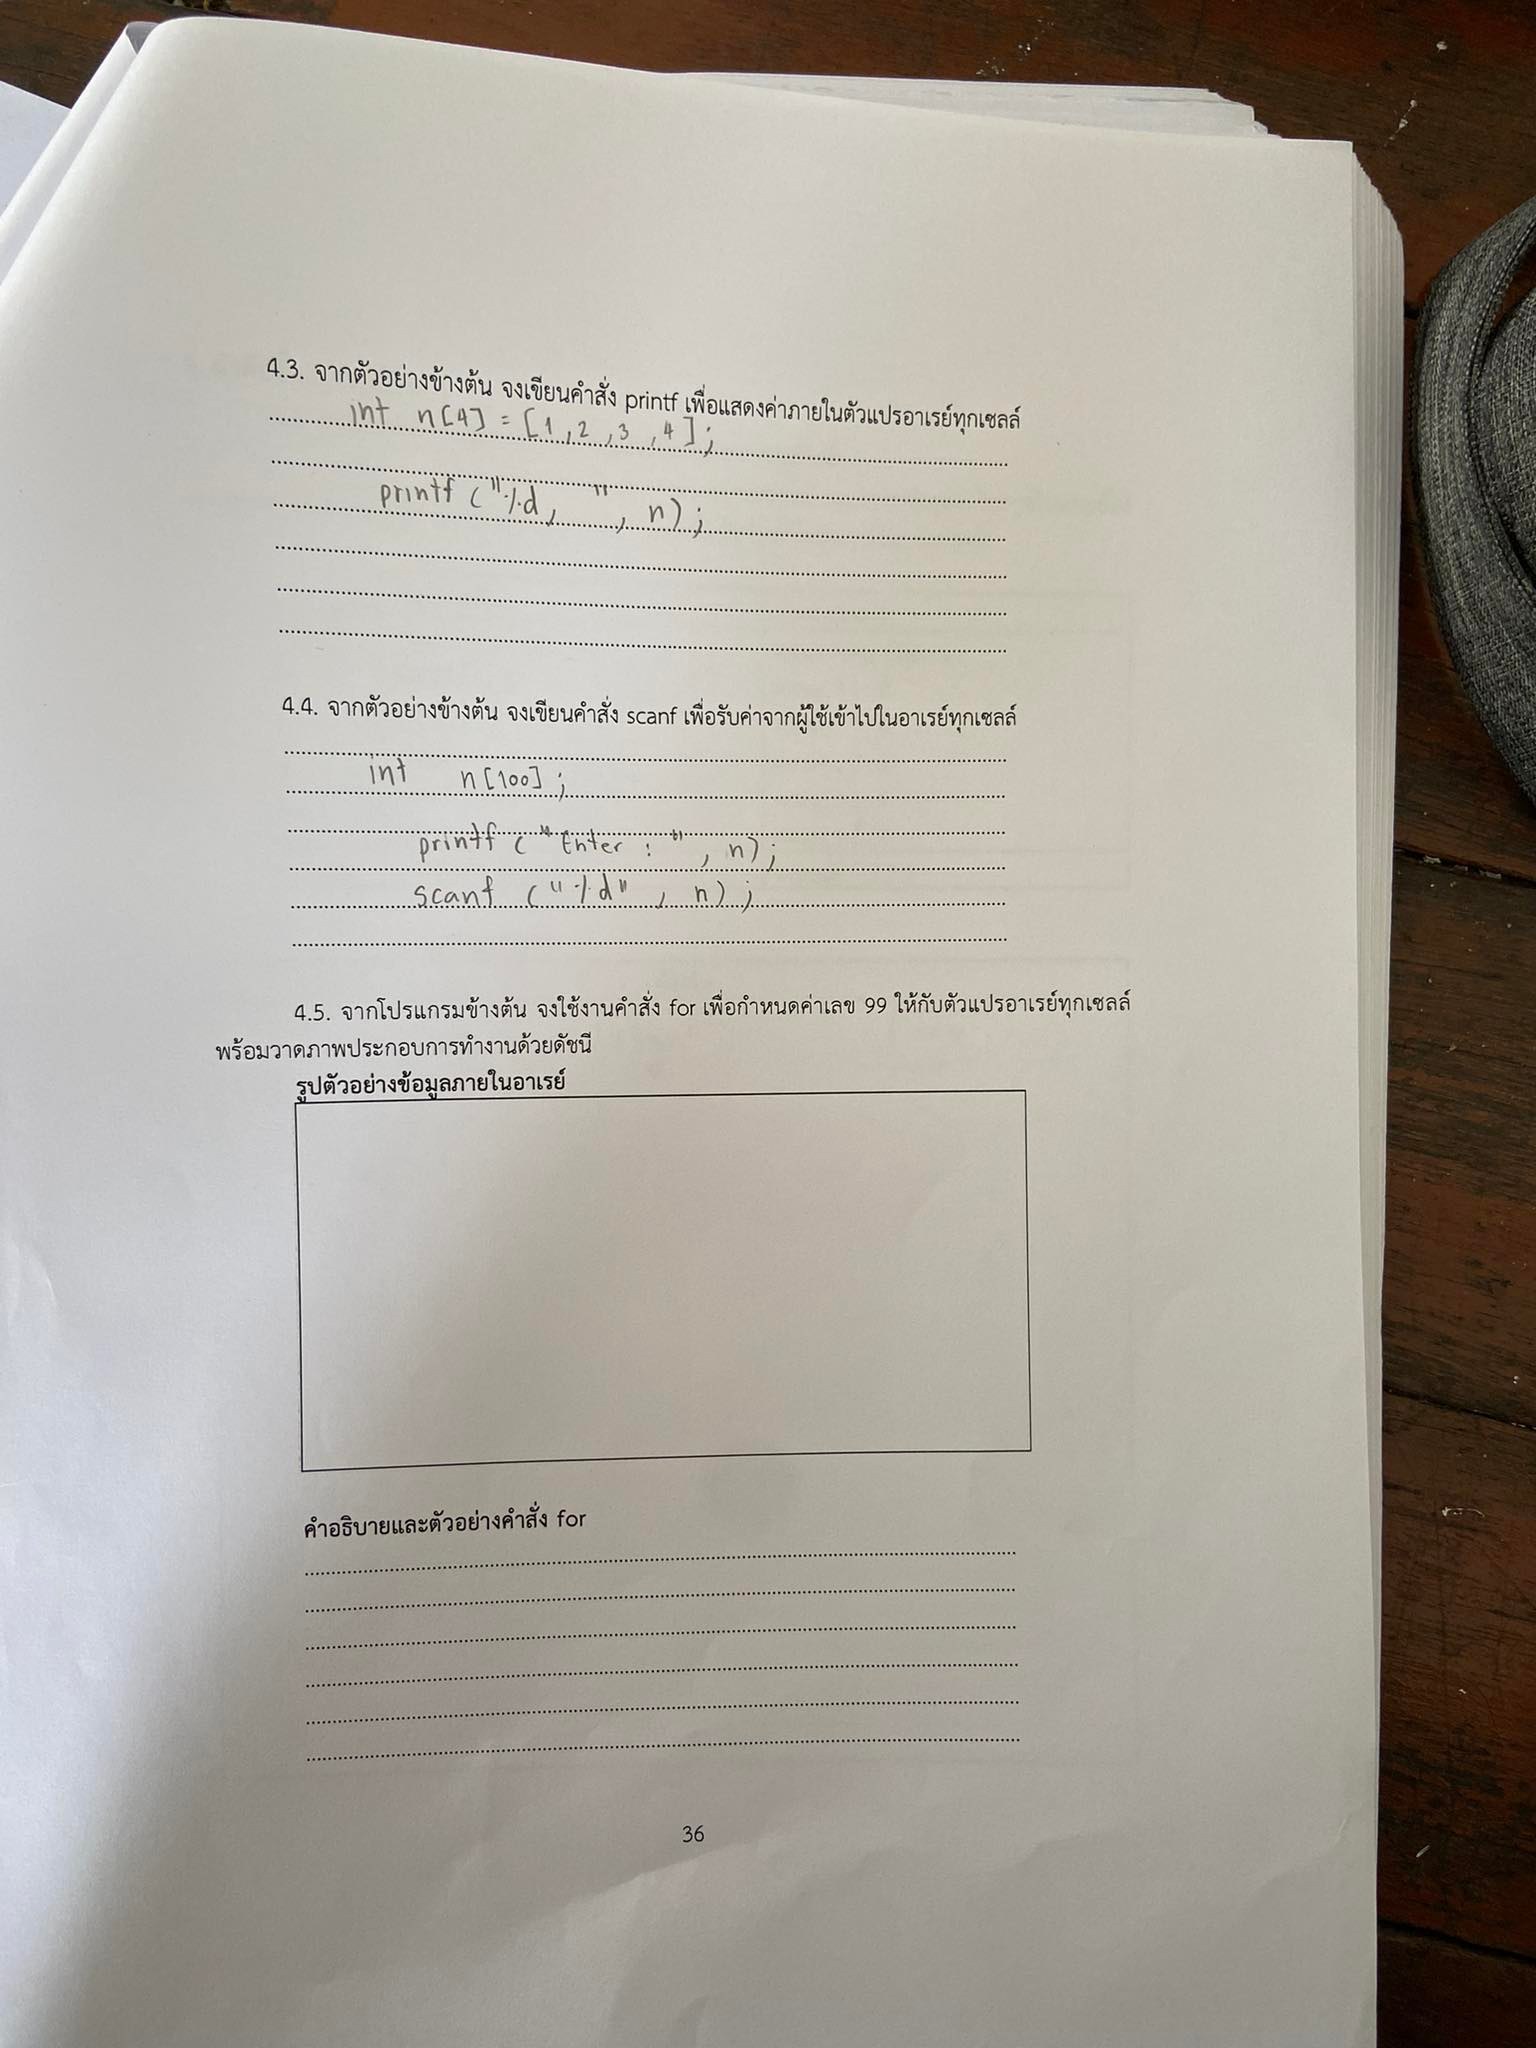 4.3. จากตัวอย่างข้างต้น จงเขียนคำสั่ง printf เพื่อแสดงค่าภายในตัวแปรอาเรย์ทุกเซลล์
int n[4] = [1, 2, 3, 4];
printf ("%d, ", n);
4.4. จากตัวอย่างข้างต้น จงเขียนคำสั่ง scanf เพื่อรับค่าจากผู้ใช้เข้าไปในอาเรย์ทุกเซลล์
int n[100];
printf ("Enter : ", n);
scanf ("%d", n);
4.5. จากโปรแกรมข้างต้น จงใช้งานคำสั่ง for เพื่อกำหนดค่าเลข 99 ให้กับตัวแปรอาเรย์ทุกเซลล์
พร้อมวาดภาพประกอบการทำงานด้วยดัชนี
รูปตัวอย่างข้อมูลภายในอาเรย์
คำอธิบายและตัวอย่างคำสั่ง for
36